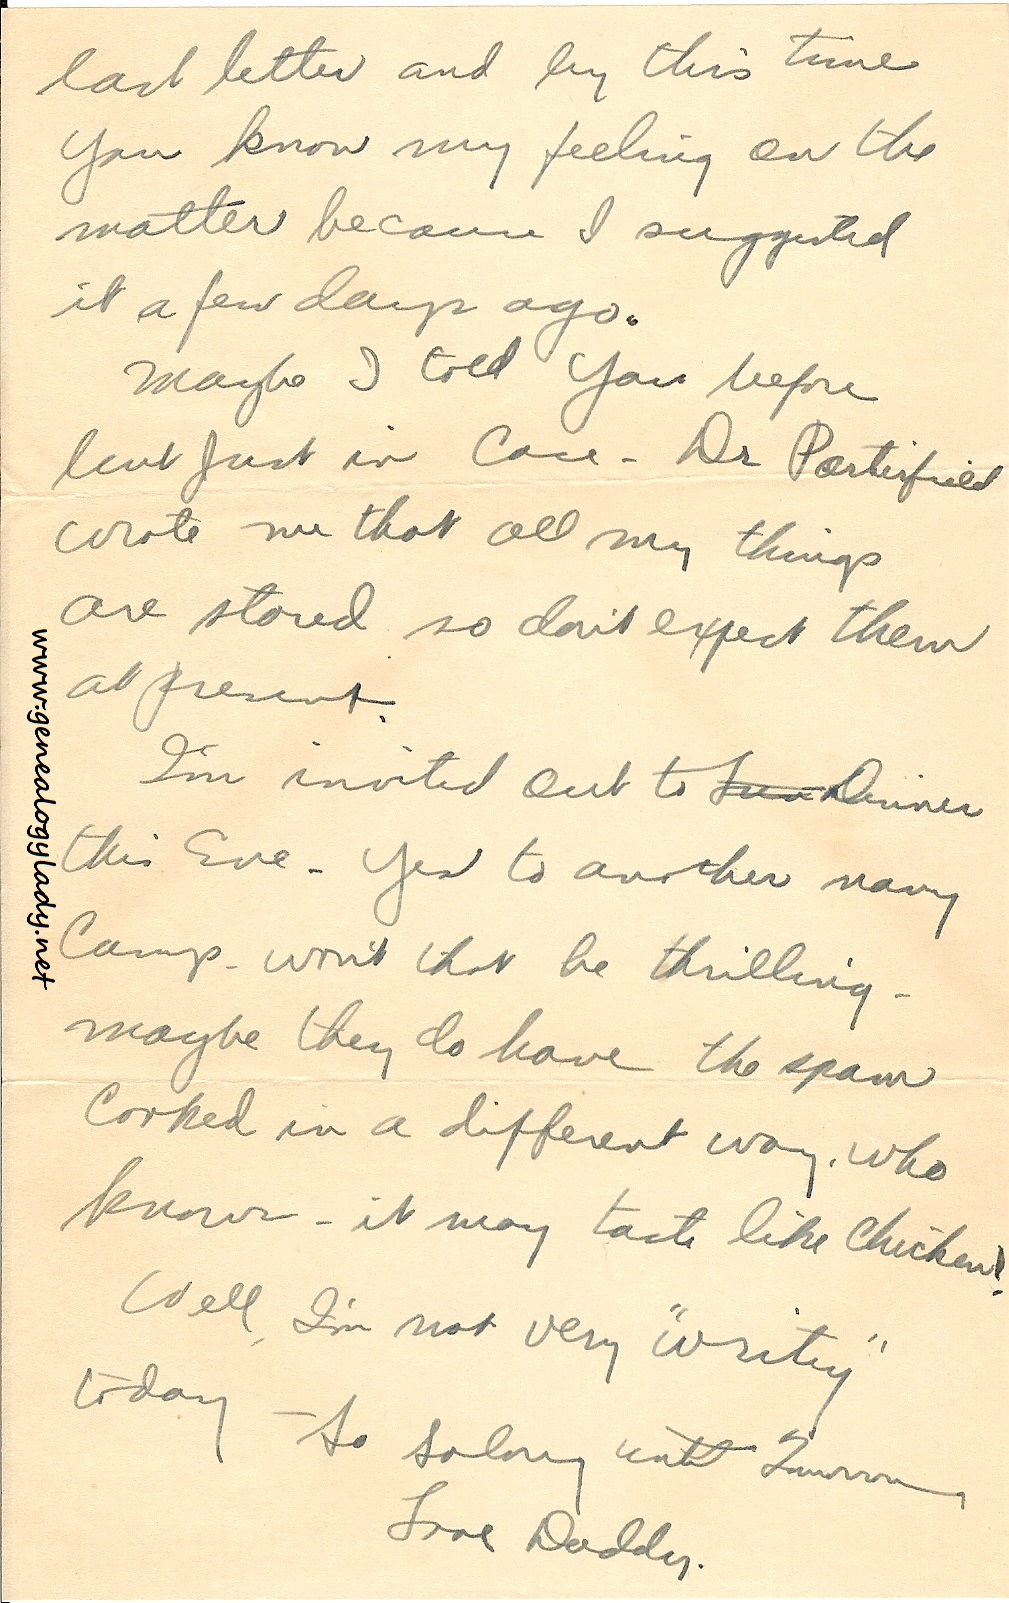 last letter and by this time
you know my feeling on the
matter because I suggested
it a few days ago.
Maybe I told you before
but just in case - Dr Porterfield
wrote me that all my things
are stored so don't expect them
at present.
I'm invited out to Dinner
this Eve - Yes to another navy
Camp - won't that be thrilling -
maybe they do have the spam
Cooked in a different way, who
knows - it may taste like chicken!
Well, I'm not very "writey"
today - So solong until Tomorrow,
Love Daddy.
www.genealogylady.net